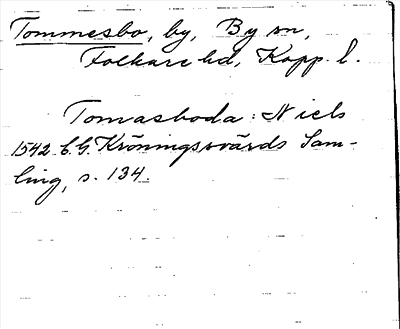 Tommesbo, by, By sn,
Folkare hd, Kopp. l.
Tomasboda: Niels
1542 C. G. Kröningssvärds Sam-
ling, s. 134.